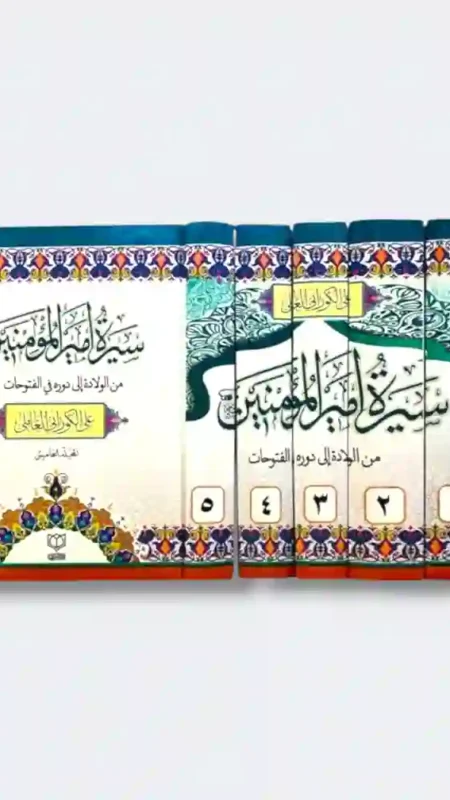 علي الكوراني العاملي
سيرة أمير المؤمنين
من الولادة إلى دوره في الفتوحات
٢ ٣ ٤ ٥
سيرة أمير المؤمنين
من الولادة إلى دوره في الفتوحات
علي الكوراني العاملي
المجلد الخامس